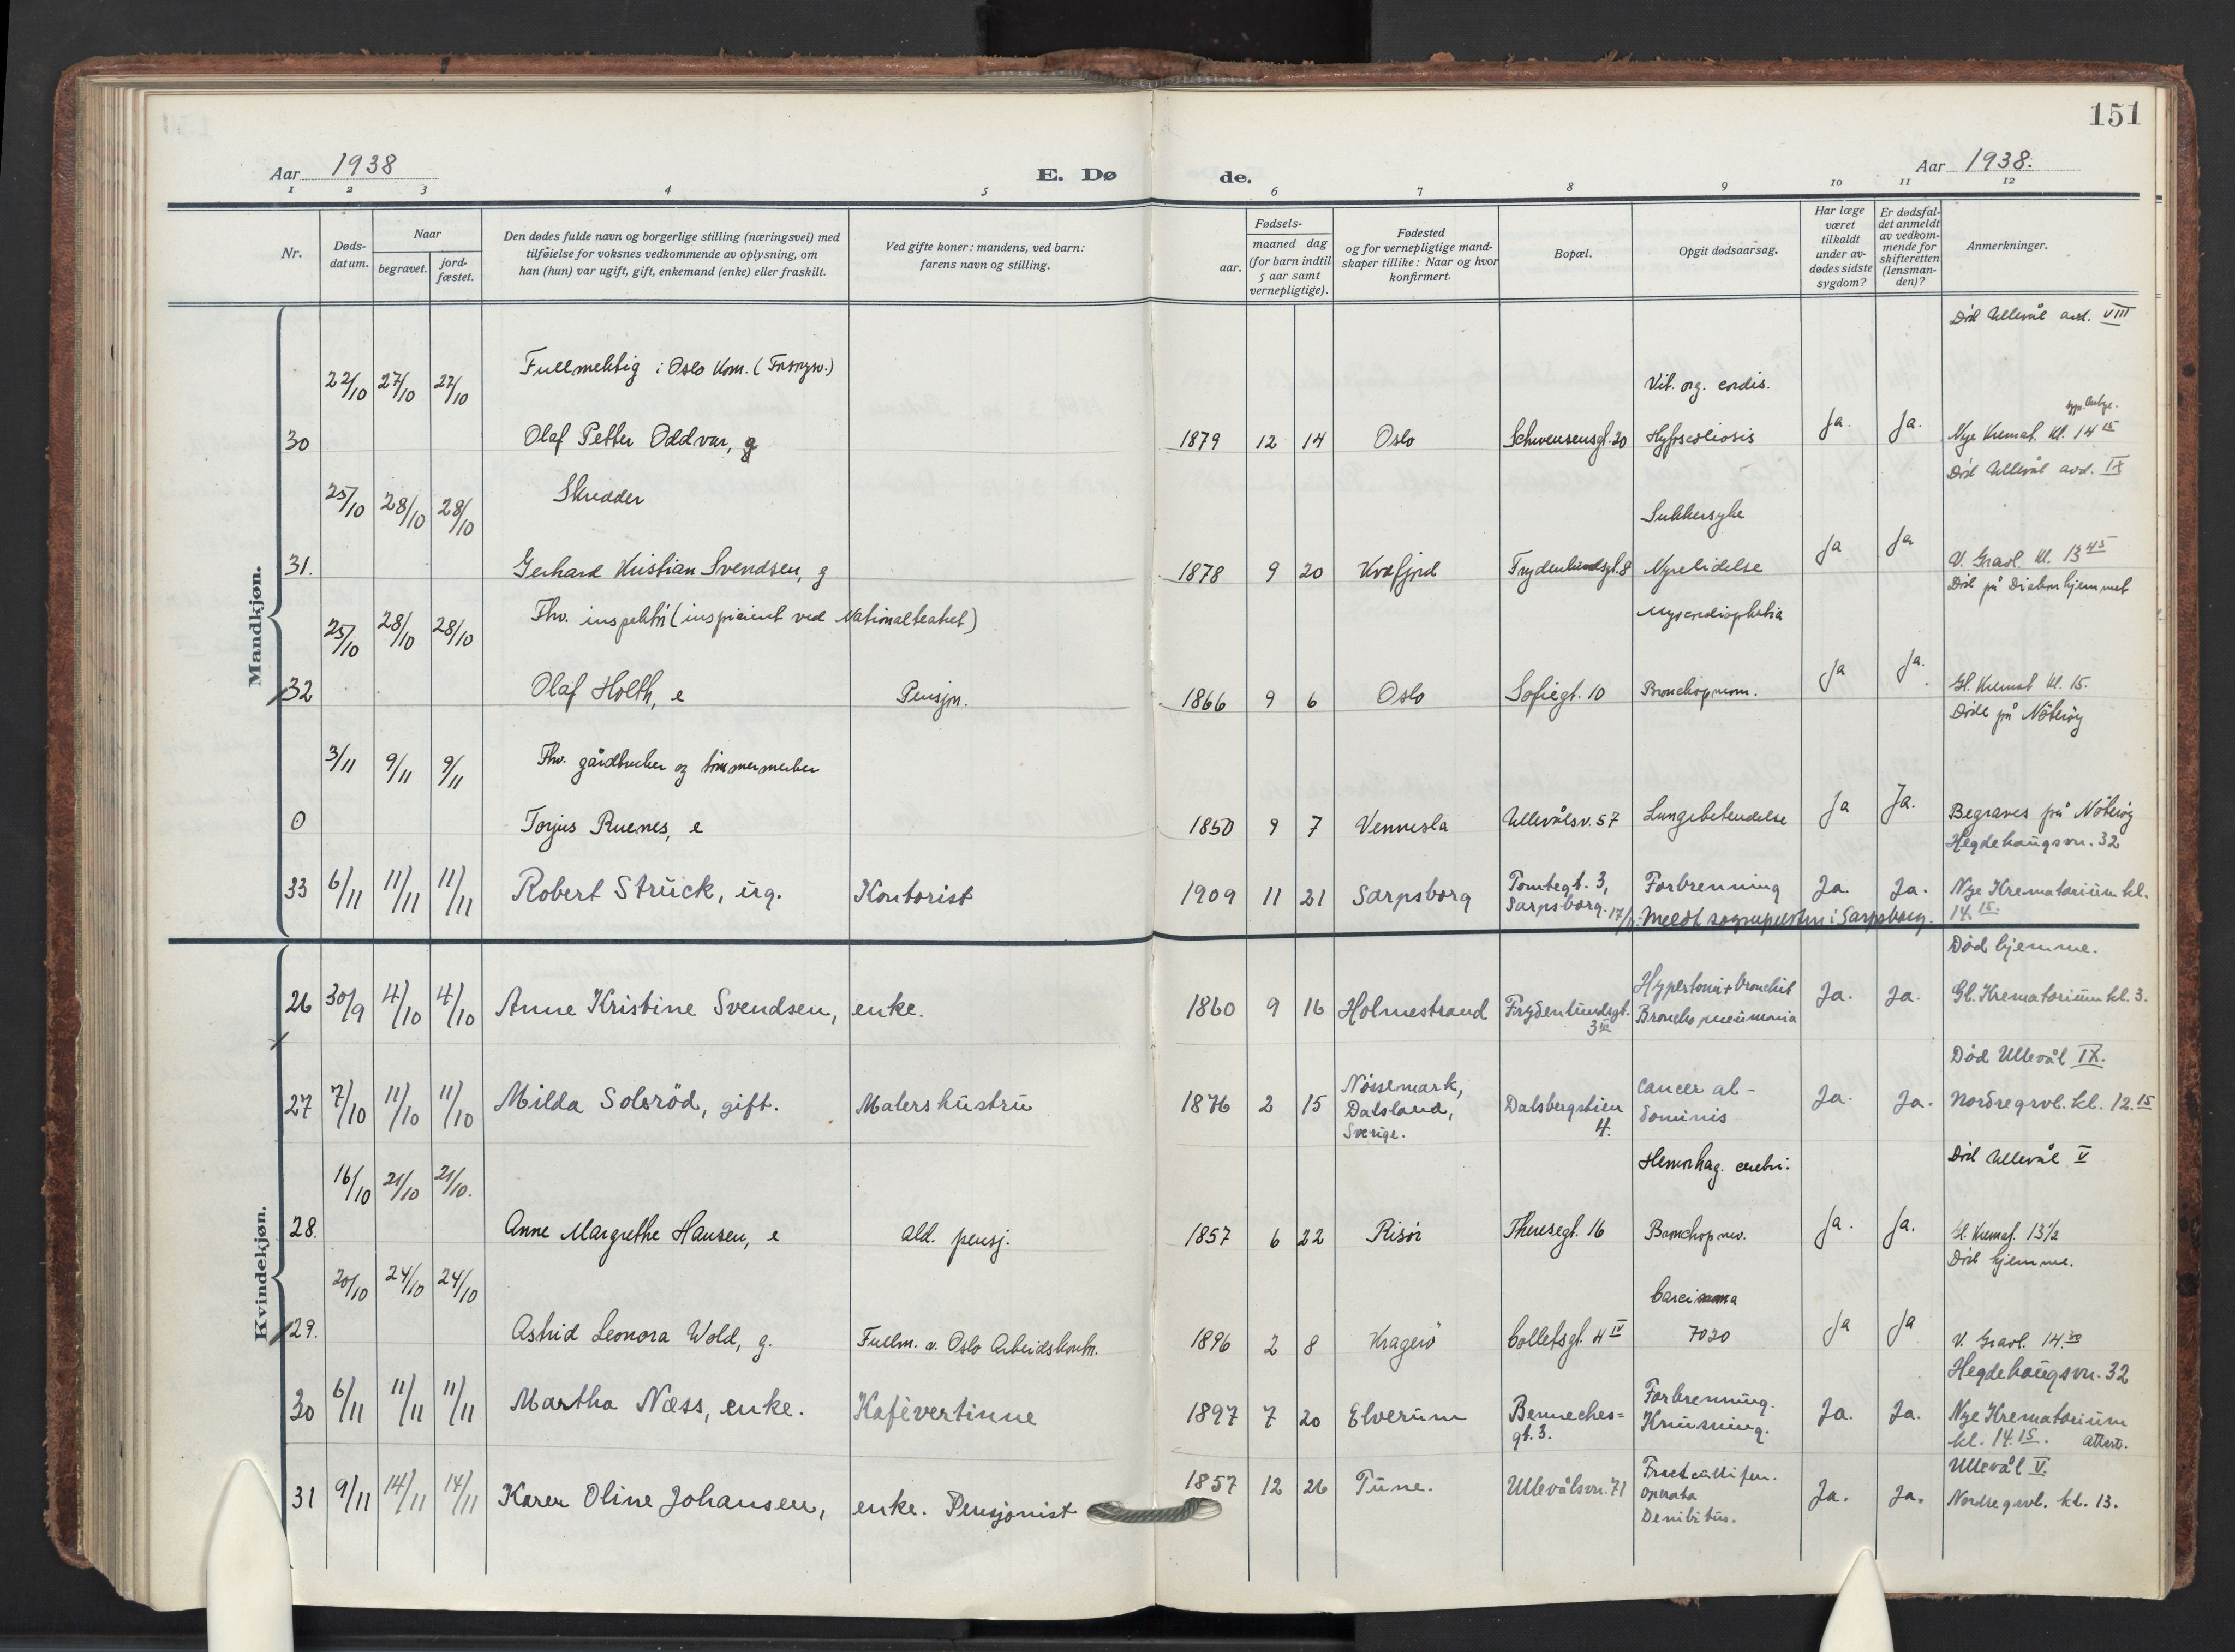 151
Aar 1938
E. Dø
de.
Aar 1938.
1 2 3 4 5 6 7 8 9 10 11 12
Nr.
Døds-
datum.
Naar
begravet.
jord-
fæstet.
Den dødes fulde navn og borgerlige stilling (næringsvei) med
tilføielse for voksnes vedkommende av oplysning, om
han (hun) var ugift, gift, enkemand (enke) eller fraskilt.
Ved gifte koner: mandens, ved barn:
farens navn og stilling.
Fødsels-
aar.
maaned dag
(for barn indtil
5 aar samt
vernepligtige).
Fødested
og for vernepligtige mand-
skaper tillike: Naar og hvor
konfirmert.
Bopæl.
Opgit dødsaarsag.
Har læge
været
tilkaldt
under av-
dødes sidste
sygdom?
Er dødsfal-
det anmeldt
av vedkom-
mende for
skifteretten
(lensman-
den)?
Anmerkninger.
Mandkjøn.
Død Ullevål avd. VIII
22/10 27/10 27/10 Fullmektig i Oslo Kom. Vit. org. cordis.
30 Olaf Petter Oddvar, g 1879 12 14 Oslo Schwensensgt. 20 Ja. Ja. Nye Kremat. kl. 14 15
Død Ullevål avd. IX
25/10 28/10 28/10 Skredder Sukkersyke
31. Gerhard Kristian Svendsen, g 1878 9 20 Kvæfjord Frydenlundsgt. 8 Nyrelidelse Ja Ja V. Gravl. kl. 13 45
Død på Diakonhjemmet
25/10 28/10 28/10 Fhv. inspektør (inspicient ved Nationalteatret)
32 Olaf Holth, e Pensjon. 1866 9 6 Oslo Sofiegt. 10 Bronchopneum. Ja Ja. Gl. Kremat kl. 15.
Døde på Nøterøy
3/11 9/11 9/11 Fhv. gårdbruker og tømmermerker
0 Torjus Ruenes, e 1850 9 7 Vennesla Ullevålsv. 57 Lungebetendelse Ja Ja. Begraves på Nøterøy
Hegdehaugsvn. 32
33 6/11 11/11 11/11 Robert Struck, ug. Kontorist 1909 11 21 Sarpsborg Tomtegt. 3, Forbrenning Ja. Ja. Nye Krematorium kl.
Sarpsborg. 17/11 Meldt sognepresten i Sarpsborg. 14.15.
Kvindekjøn.
Død hjemme.
26 30/9 4/10 4/10 Anne Kristine Svendsen, enke. 1860 9 16 Holmestrand Frydenlundsgt. Hypertoni + bronchit Ja. Ja. Gl. Krematorium kl. 3.
3 III Broncho pneumonia
Død Ullevål IX.
27 7/10 11/10 11/10 Milda Solerød, gift. Malers hustru 1876 2 15 Nössemark, Dalsbergstien Cancer ab- Ja. Ja. Nordregrvl. kl. 12.15
Dalsland, 4. dominis
Sverige.
16/10 21/10 21/10. Hemorhag. cerebri. Død Ullevål V
28. Anne Margrethe Hansen, e ald. pensj. 1857 6 22 Risør Theresegt. 16 Bronchopnev. Ja. Ja. Gl. Kremat. 13 1/2
Død hjemme.
20/10 24/10 24/10 Carcinoma
29. Astrid Leonora Wold, g. Fullm. v. Oslo Arbeidskont. 1896 2 8 Kragerø Colletsgt. 4 IV 7020 Ja Ja V. Gravl. 14.30
Hegdehaugsvn. 32
30 6/11 11/11 11/11 Martha Næss, enke. Kafévertinne 1897 7 20 Elverum Benneches- Forbrenning. Ja. Ja. Nye Krematorium
gt. 3. Knusning. kl. 14.15. Attest.
Ullevål V.
31 9/11 14/11 14/11 Karen Oline Johansen, enke. Pensjonist 1857 12 26 Tune. Ullevålsvn. 71 Fract colli fem. Ja. Ja. Nordregrvl. kl. 13.
operata